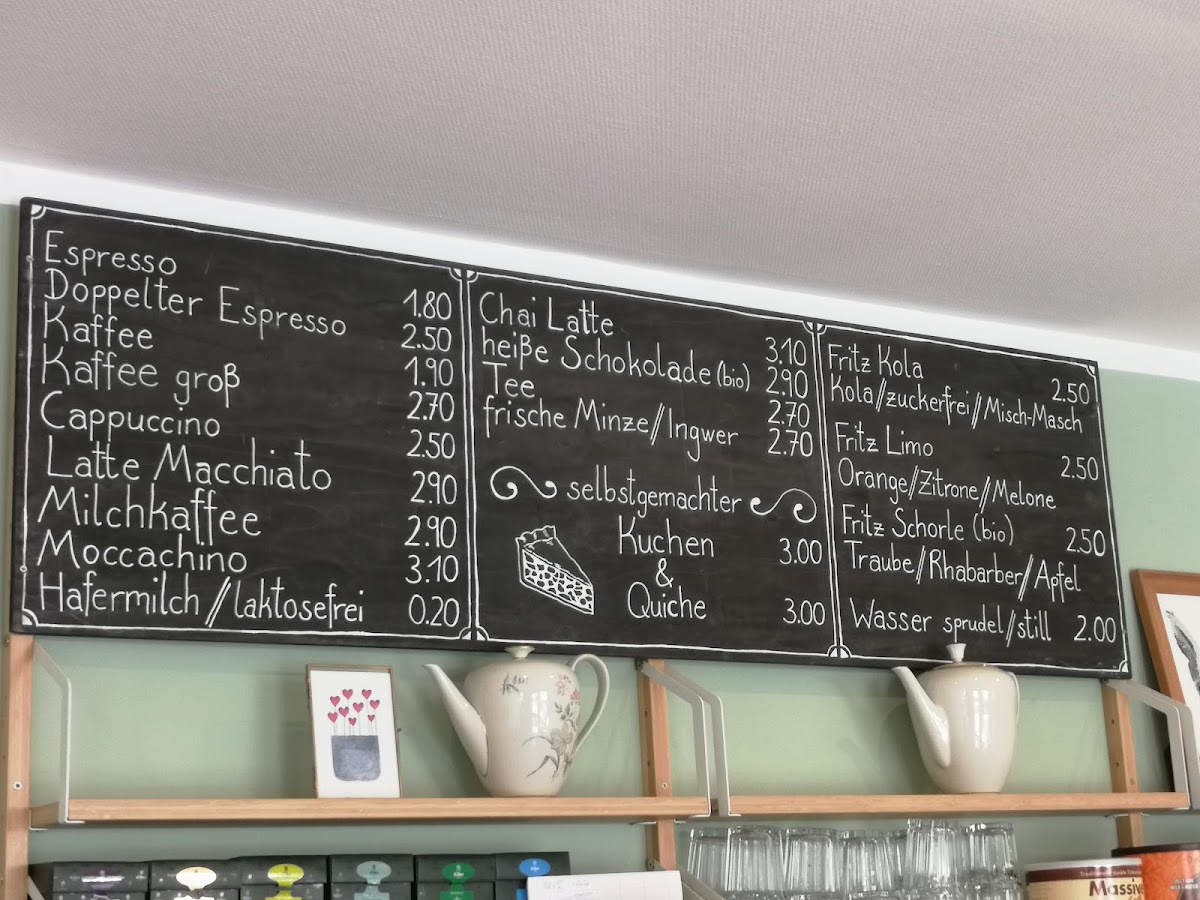 Espresso 1.80
Doppelter Espresso 2.50
Kaffee 1.90
Kaffee groß 2.70
Cappuccino 2.50
Latte Macchiato 2.90
Milchkaffee 2.90
Moccachino 3.10
Hafermilch//laktosefrei 0.20
Chai Latte 3.10
heiße Schokolade (bio) 2.90
Tee 2.70
frische Minze//Ingwer 2.70
selbstgemachter
Kuchen 3.00
&
Quiche 3.00
Fritz Kola 2.50
Kola//zuckerfrei//Misch-Masch
Fritz Limo 2.50
Orange//Zitrone//Melone
Fritz Schorle (bio) 2.50
Traube//Rhabarber//Apfel
Wasser sprudel//still 2.00
Massive